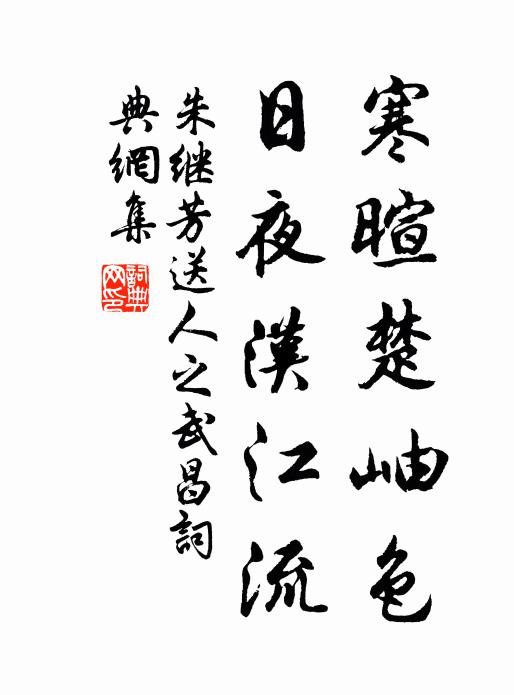 寒暄楚岫色
日夜漢江流
朱继芳送人之武昌詞
典網集
詞典
网印